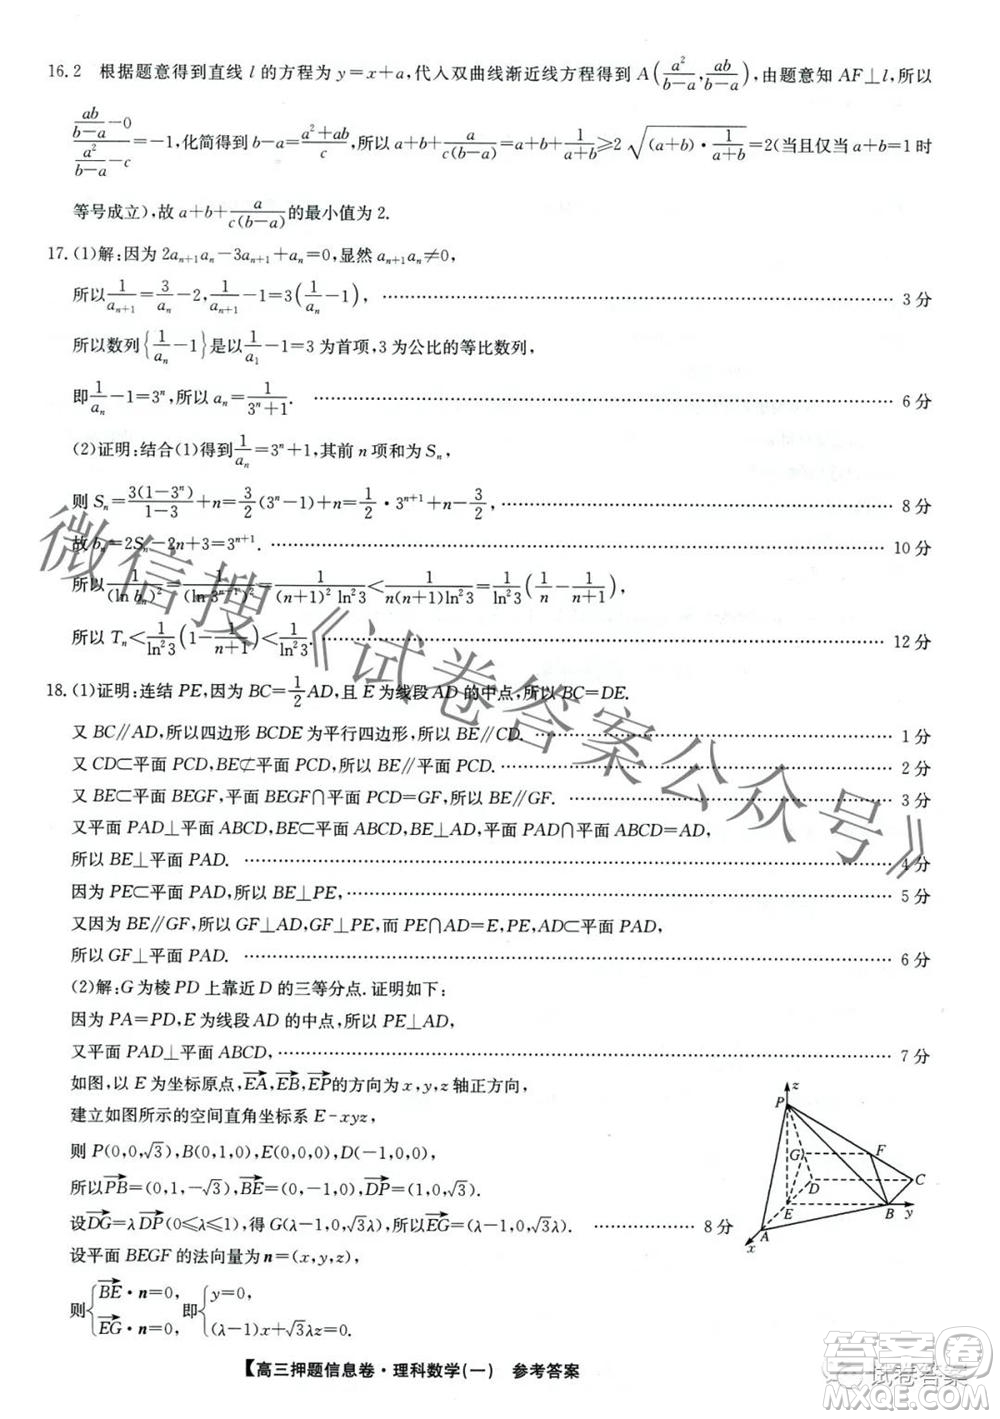 16. 2 根据题意得到直线 l 的方程为 y=x+a,代入双曲线渐近线方程得到 A(a²/(b−a), ab/(b−a)),由题意知 AF⊥l,所以
(ab/(b−a) −0)/(a²/(b−a) −c)=−1,化简得到 b−a=(a²+ab)/c,所以 a+b+a/(c(b−a))=a+b+1/(a+b)≥2√((a+b)·1/(a+b))=2(当且仅当 a+b=1 时
等号成立),故 a+b+a/(c(b−a))的最小值为 2.
17. (1)解:因为 2aₙ₊₁aₙ−3aₙ₊₁+aₙ=0,显然 aₙ₊₁aₙ≠0,
所以 1/aₙ₊₁=3/aₙ−2, 1/aₙ₊₁−1=3(1/aₙ−1), …… 3 分
所以数列{1/aₙ−1}是以 1/a₁−1=3 为首项,3 为公比的等比数列,
即 1/aₙ−1=3ⁿ,所以 aₙ=1/(3ⁿ+1). …… 6 分
(2)证明:结合(1)得到 1/aₙ=3ⁿ+1,其前 n 项和为 Sₙ,
则 Sₙ=3(1−3ⁿ)/(1−3)+n=3/2(3ⁿ−1)+n=1/2·3ⁿ⁺¹+n−3/2, …… 8 分
故 bₙ=2Sₙ−2n+3=3ⁿ⁺¹. …… 10 分
所以 1/(ln bₙ)²=1/(ln 3ⁿ⁺¹)²=1/((n+1)² ln²3)<1/(n(n+1)ln²3)=1/ln²3(1/n−1/(n+1)),
所以 Tₙ<1/ln²3(1−1/(n+1))<1/ln²3. …… 12 分
18. (1)证明:连结 PE,因为 BC=1/2AD,且 E 为线段 AD 的中点,所以 BC=DE.
又 BC∥AD,所以四边形 BCDE 为平行四边形,所以 BE∥CD. …… 1 分
又 CD⊂平面 PCD,BE⊄平面 PCD,所以 BE∥平面 PCD. …… 2 分
又 BE⊂平面 BEGF,平面 BEGF∩平面 PCD=GF,所以 BE∥GF. …… 3 分
又平面 PAD⊥平面 ABCD,BE⊂平面 ABCD,平面 PAD∩平面 ABCD=AD,
所以 BE⊥平面 PAD. …… 4 分
因为 PE⊂平面 PAD,所以 BE⊥PE, …… 5 分
又因为 BE∥GF,所以 GF⊥AD,GF⊥PE,而 PE∩AD=E,AD⊂平面 PAD,
所以 GF⊥平面 PAD. …… 6 分
(2)解:G 为棱 PD 上靠近 D 的三等分点.证明如下:
因为 PA=PD,E 为线段 AD 的中点,所以 PE⊥AD,
又平面 PAD⊥平面 ABCD, …… 7 分
如图,以 E 为坐标原点,EA→,EB→,EP→的方向为 x,y,z 轴正方向,
建立如图所示的空间直角坐标系 E-xyz,
则 P(0,0,√3),B(0,1,0),E(0,0,0),D(−1,0,0),
所以PB→=(0,1,−√3),BE→=(0,−1,0),DP→=(1,0,√3).
设DG→=λDP→(0≤λ≤1),得 G(λ−1,0,√3λ),所以EG→=(λ−1,0,√3λ). …… 8 分
设平面 BEGF 的法向量为 n=(x,y,z),
则{BE→·n=0, EG→·n=0, 即{y=0, (λ−1)x+√3λz=0.
z
P
F
G
D
C
E
B
y
A
x
【高三押题信息卷·理科数学(一) 参考答案
微信搜《试卷答案公众号》
试卷答案
答案圈
MXQE.COM